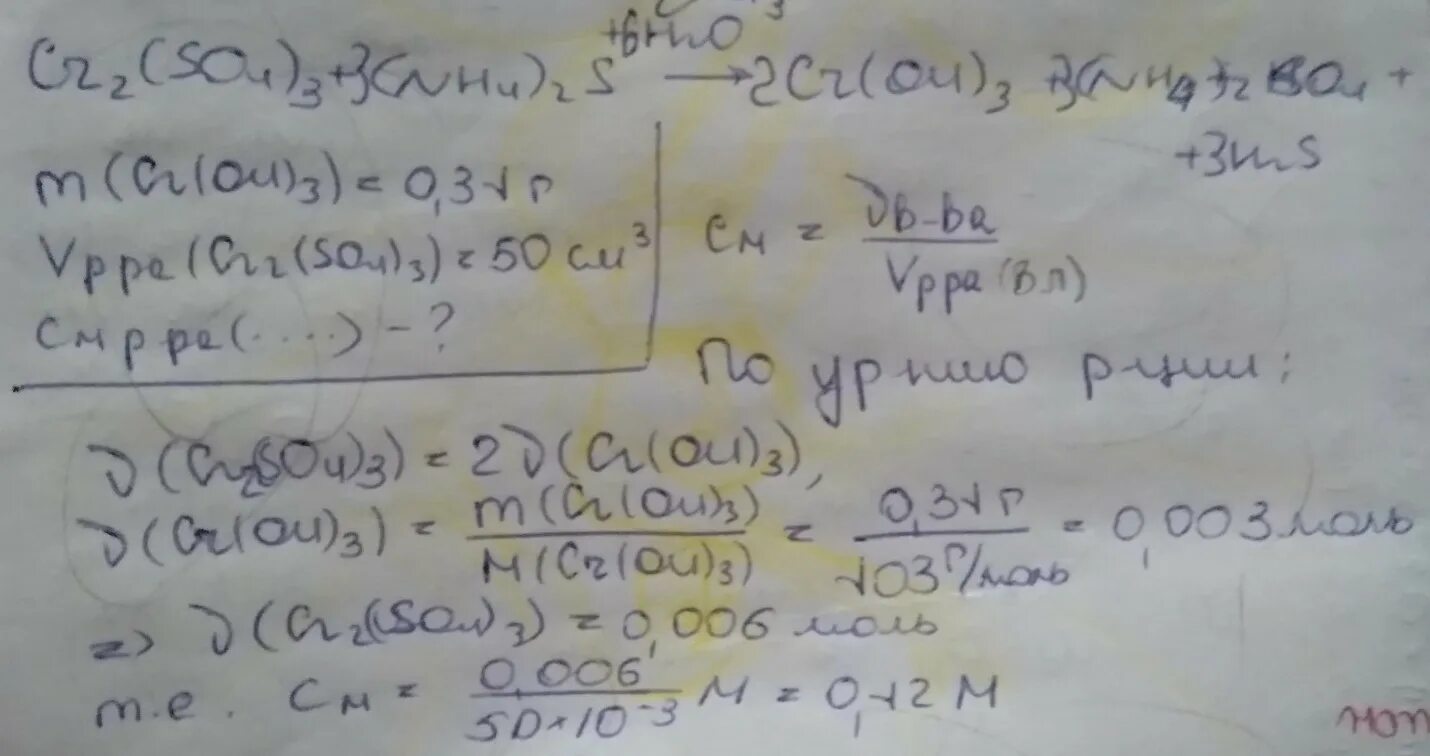 +6H₂O
Cr₂(SO₄)₃+3(NH₄)₂S → 2Cr(OH)₃ + 3(NH₄)₂SO₄ +
+3H₂S
m(Cr(OH)₃) = 0,31г
Vрра(Cr₂(SO₄)₃) = 50 см³
Cм рра(....) - ?
Cм = νв-ва / Vрра (в л)
По урнию рции:
ν(Cr₂(SO₄)₃) = 2ν(Cr(OH)₃),
ν(Cr(OH)₃) = m(Cr(OH)₃) / M(Cr(OH)₃) = 0,31г / 103г/моль = 0,003моль
=> ν(Cr₂(SO₄)₃) = 0,006 моль
т.е. Cм = 0,006 / 50*10⁻³ M = 0,12 M